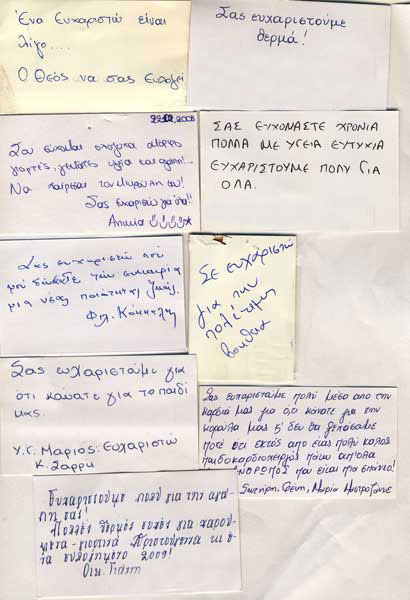 Ένα Ευχαριστώ είναι
λίγο....
Ο Θεός να σας Ευλογεί
Σας ευχαριστούμε
θερμά!
22.12.2008
Σου εύχομαι ολόψυχα
γιορτές, γεμάτες υγεία και αγάπη!
Να χαίρεσαι την
Σας ευχαριστώ για όλα!!
ΣΑΣ ΕΥΧΟΜΑΣΤΕ ΧΡΟΝΙΑ
ΠΟΛΛΑ ΜΕ ΥΓΕΙΑ ΕΥΤΥΧΙΑ
ΕΥΧΑΡΙΣΤΟΥΜΕ ΠΟΛΥ ΓΙΑ
ΟΛΑ.
Σας ευχαριστώ που
μου δώσατε την ευκαιρία
μια νέας ποιότητας ζωής.
Φιλ. Κόκκαλης
Σε ευχαριστώ
για την
πολύτιμη
βοήθεια
Σας ευχαριστούμε για
ότι κάνατε για το παιδί
μας.
Υ.Γ. Μάριος: Ευχαριστώ
κ. Σαρρή
Σας ευχαριστούμε πολύ μέσα από την
καρδιά μας για ό,τι κάνατε για την
κορούλα μας κ' δεν θα ξεχάσουμε
ποτέ ότι εκτός από ένας πολύ καλός
παιδοκαρδιοχειρ/γός πάνω απ'όλα
ΑΝΘΡΩΠΟΣ που είναι πιο σπάνιο!
Σωτήρη, Φένη, Μαρία Μαστροτζάννε
Ευχαριστούμε πολύ για την αγά-
πη σας!
Πολλές θερμές ευχές για χαρού-
μενα - γιορτινά Χριστούγεννα κι έ-
να ευλογημένο 2009!
Οικ. Γιάπη